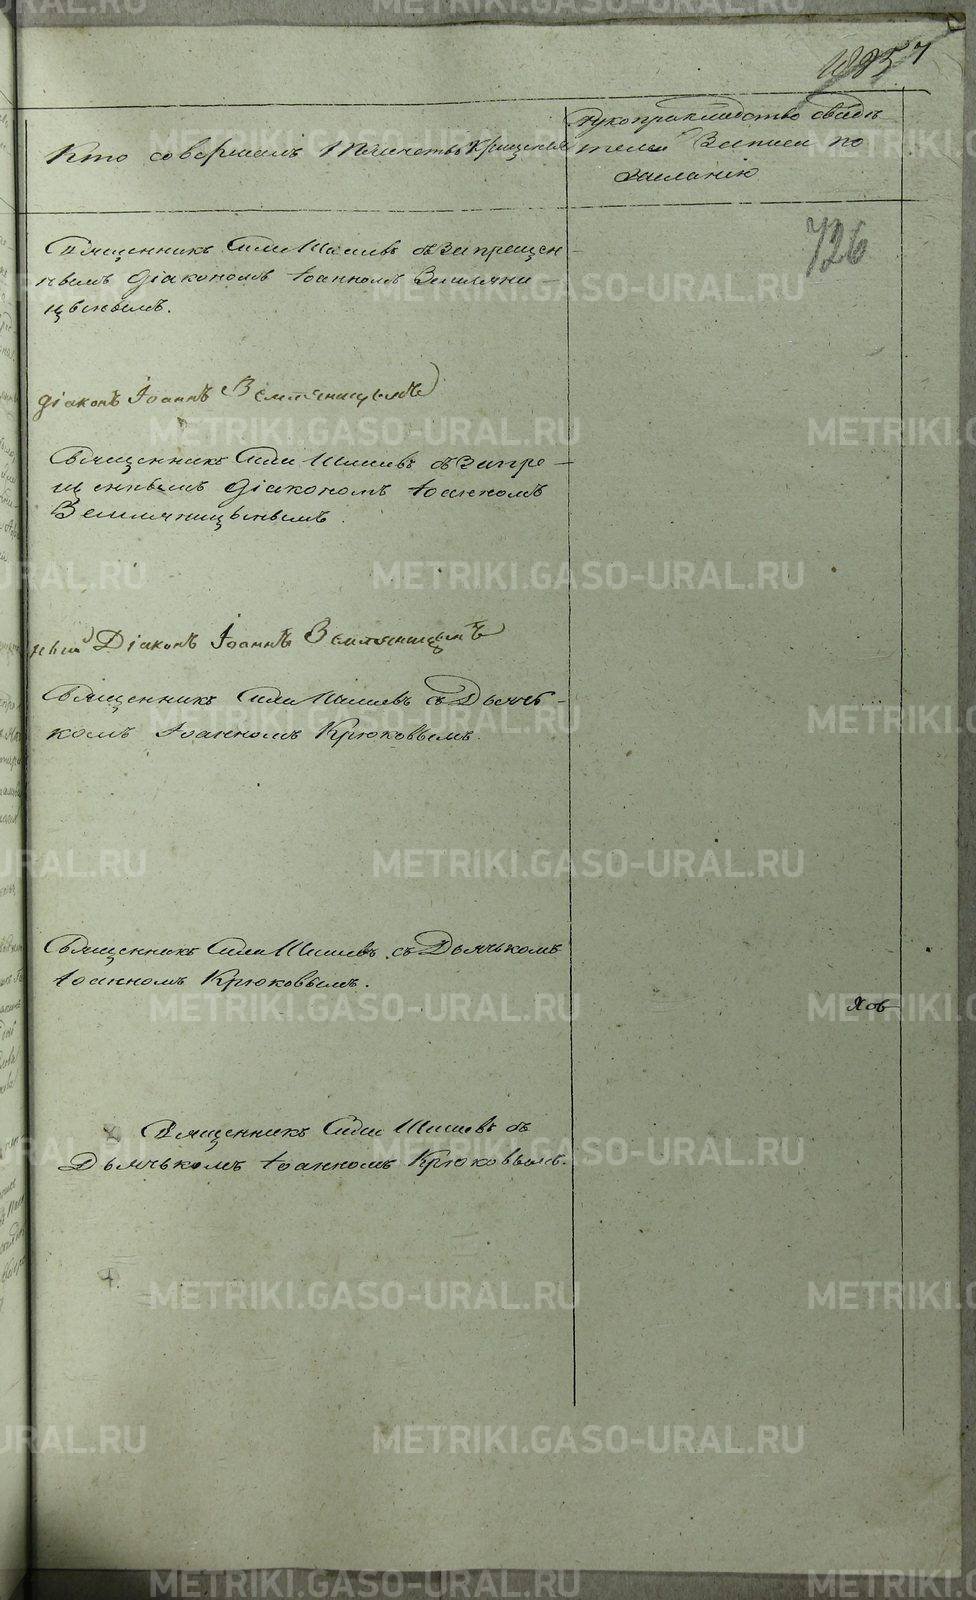 7
726
Кто совершалъ таинство крещенія
Рукоприкладство свидѣ
телей записи по
желанію
Священникъ Сила Шишевъ съ запрещен-
нымъ діакономъ Іоанномъ Земляни-
цынымъ.
діаконъ Іоаннъ Земляницынъ
Священникъ Сила Шишевъ съ запре-
щеннымъ діакономъ Іоанномъ
Земляницынымъ.
ный Діаконъ Іоаннъ Земляницынъ
Священникъ Сила Шишевъ съ Дьячь-
комъ Іоанномъ Крюковымъ.
Священникъ Сила Шишевъ съ Дьячькомъ
Іоанномъ Крюковымъ.
Священникъ Сила Шишевъ съ
Дьячькомъ Іоанномъ Крюковымъ.
METRIKI.GASO-URAL.RU